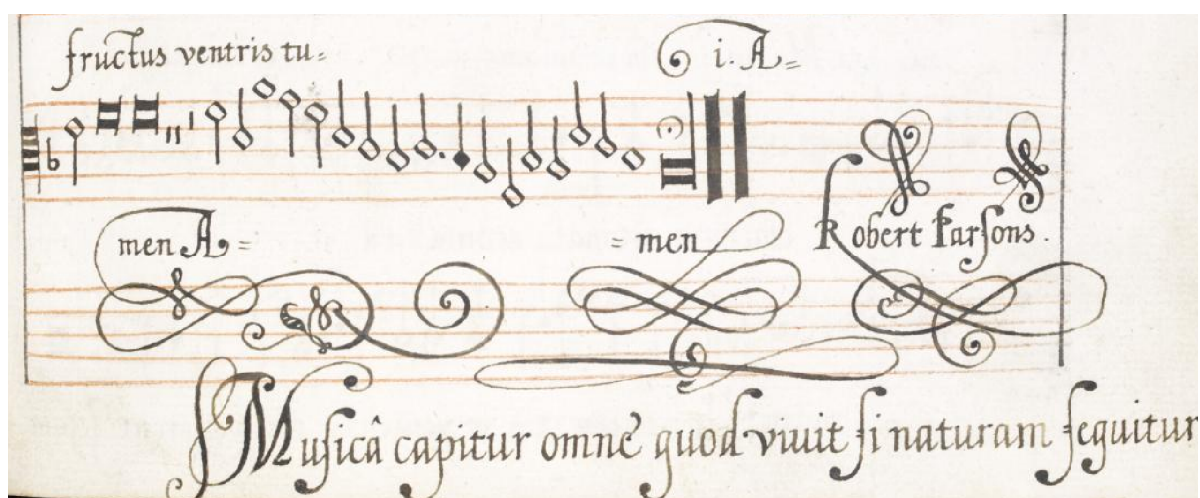 fructus ventris tu= i. A=
men A= =men Robert Parsons.
Musicâ capitur omne quod viuit si naturam sequitur